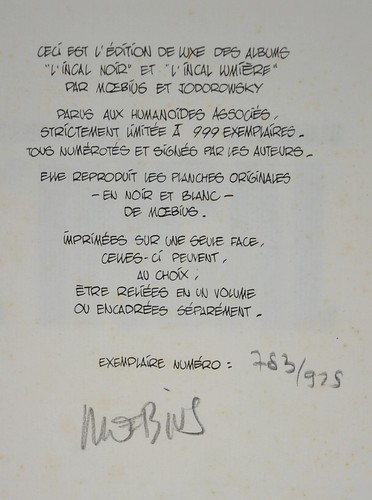 CECI EST L'ÉDITION DE LUXE DES ALBUMS
"L'INCAL NOIR" ET "L'INCAL LUMIÈRE"
PAR MŒBIUS ET JODOROWSKY
PARUS AUX HUMANOÏDES ASSOCIÉS,
STRICTEMENT LIMITÉE À 999 EXEMPLAIRES_
TOUS NUMÉROTÉS ET SIGNÉS PAR LES AUTEURS_
ELLE REPRODUIT LES PLANCHES ORIGINALES
_EN NOIR ET BLANC_
DE MŒBIUS_
IMPRIMÉES SUR UNE SEULE FACE,
CELLES-CI PEUVENT,
AU CHOIX,
ÊTRE RELIÉES EN UN VOLUME
OU ENCADRÉES SÉPARÉMENT_
EXEMPLAIRE NUMÉRO : 783/925
MŒBIUS